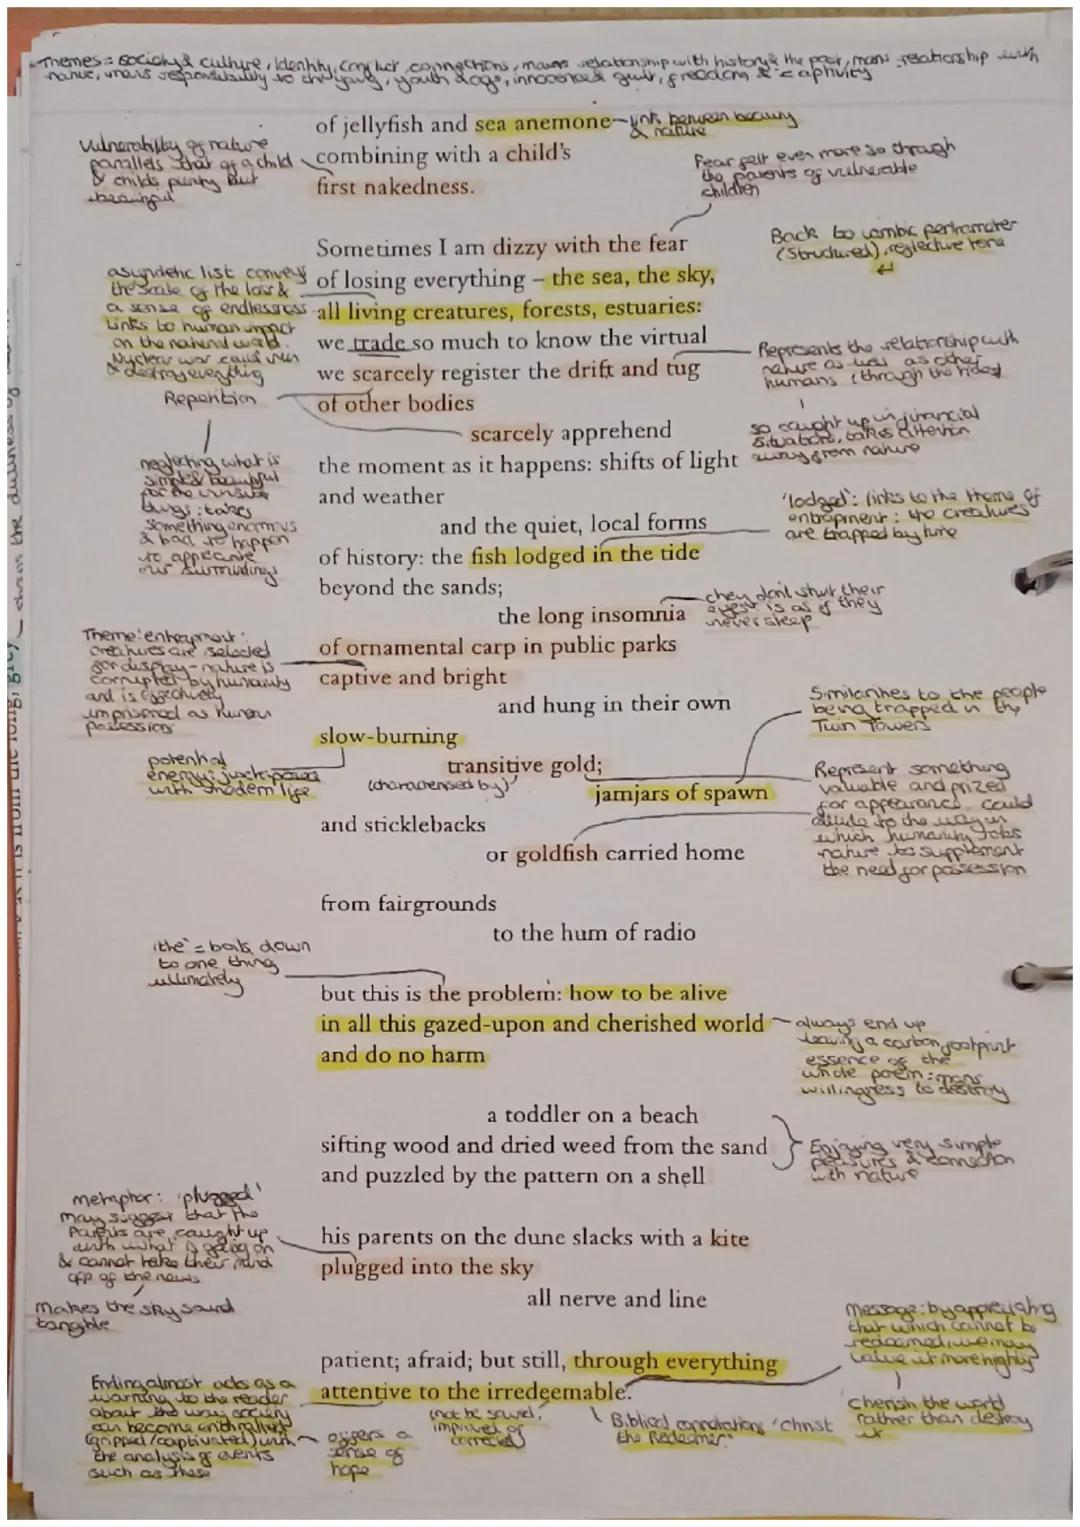 Themes = society & culture, identity, conflict, connections, mans relationship with history & the past, mans relationship with
nature, mans responsibility to the young, youth & age, innocence & guilt, freedom & captivity
of jellyfish and sea anemone
link between beauty
& nature
Vulnerability of nature
parallels that of a child
& childs purity but
beautiful
combining with a child's
first nakedness.
Fear felt even more so through
the parents of vulnerable
children
Sometimes I am dizzy with the fear
Back to iambic pentameter
(structured), reflective tone
asyndetic list conveys
the scale of the loss &
a sense of endlessness
Links to human impact
on the natural world.
Nuclear war could ruin
& destroy everything
of losing everything – the sea, the sky,
all living creatures, forests, estuaries:
we trade so much to know the virtual
we scarcely register the drift and tug
Represents the relationship with
nature as well as other
humans (through the tides)
Repetition
of other bodies
scarcely apprehend
so caught up in financial
situations, takes attention
away from nature
neglecting what is
simple & beautiful
for the
things: takes
something enormous
& bad to happen
to appreciate
our surroundings
the moment as it happens: shifts of light
and weather
and the quiet, local forms
'lodged': links to the theme of
entrapment: the creatures
are trapped by time
of history: the fish lodged in the tide
beyond the sands;
the long insomnia
they don't shut their
eyes: is as if they
never sleep
Theme: entrapment:
creatures are selected
for display - nature is
corrupted by humanity
and is effectively
imprisoned as human
possession
of ornamental carp in public parks
captive and bright
and hung in their own
Similarities to the people
being trapped in the
Twin Towers
slow-burning
potential
energy: juxtaposed
with modern life
transitive gold;
(characterised by)
jamjars of spawn
Represent something
valuable and prized
for appearance. could
allude to the way in
which humanity robs
nature to supplement
the need for possession
and sticklebacks
or goldfish carried home
from fairgrounds
to the hum of radio
'the' = boils down
to one thing
ultimately
but this is the problem: how to be alive
in all this gazed-upon and cherished world
and do no harm
always end up
leaving a carbon footprint
essence of the
whole poem: mans
willingness to destroy
a toddler on a beach
sifting wood and dried weed from the sand
and puzzled by the pattern on a shell
Enjoying very simple
pleasures & connection
with nature
metaphor: 'plugged'
may suggest that the
Parents are caught up
with what is going on
& cannot take their mind
off of the news
Makes the sky sound
tangible
his parents on the dune slacks with a kite
plugged into the sky
all nerve and line
Message: by appreciating
that which cannot be
redeemed, we may
value it more highly
cherish the world
rather than destroy
it
patient; afraid; but still, through everything
attentive to the irredeemable.
Ending almost acts as a
warning to the reader
about the way society
can become enthralled
(gripped/captivated) with
the analysis of events
such as these
offers a
sense of
hope
(not be saved,
improved or
corrected)
Biblical connotations 'christ
the Redeemer'